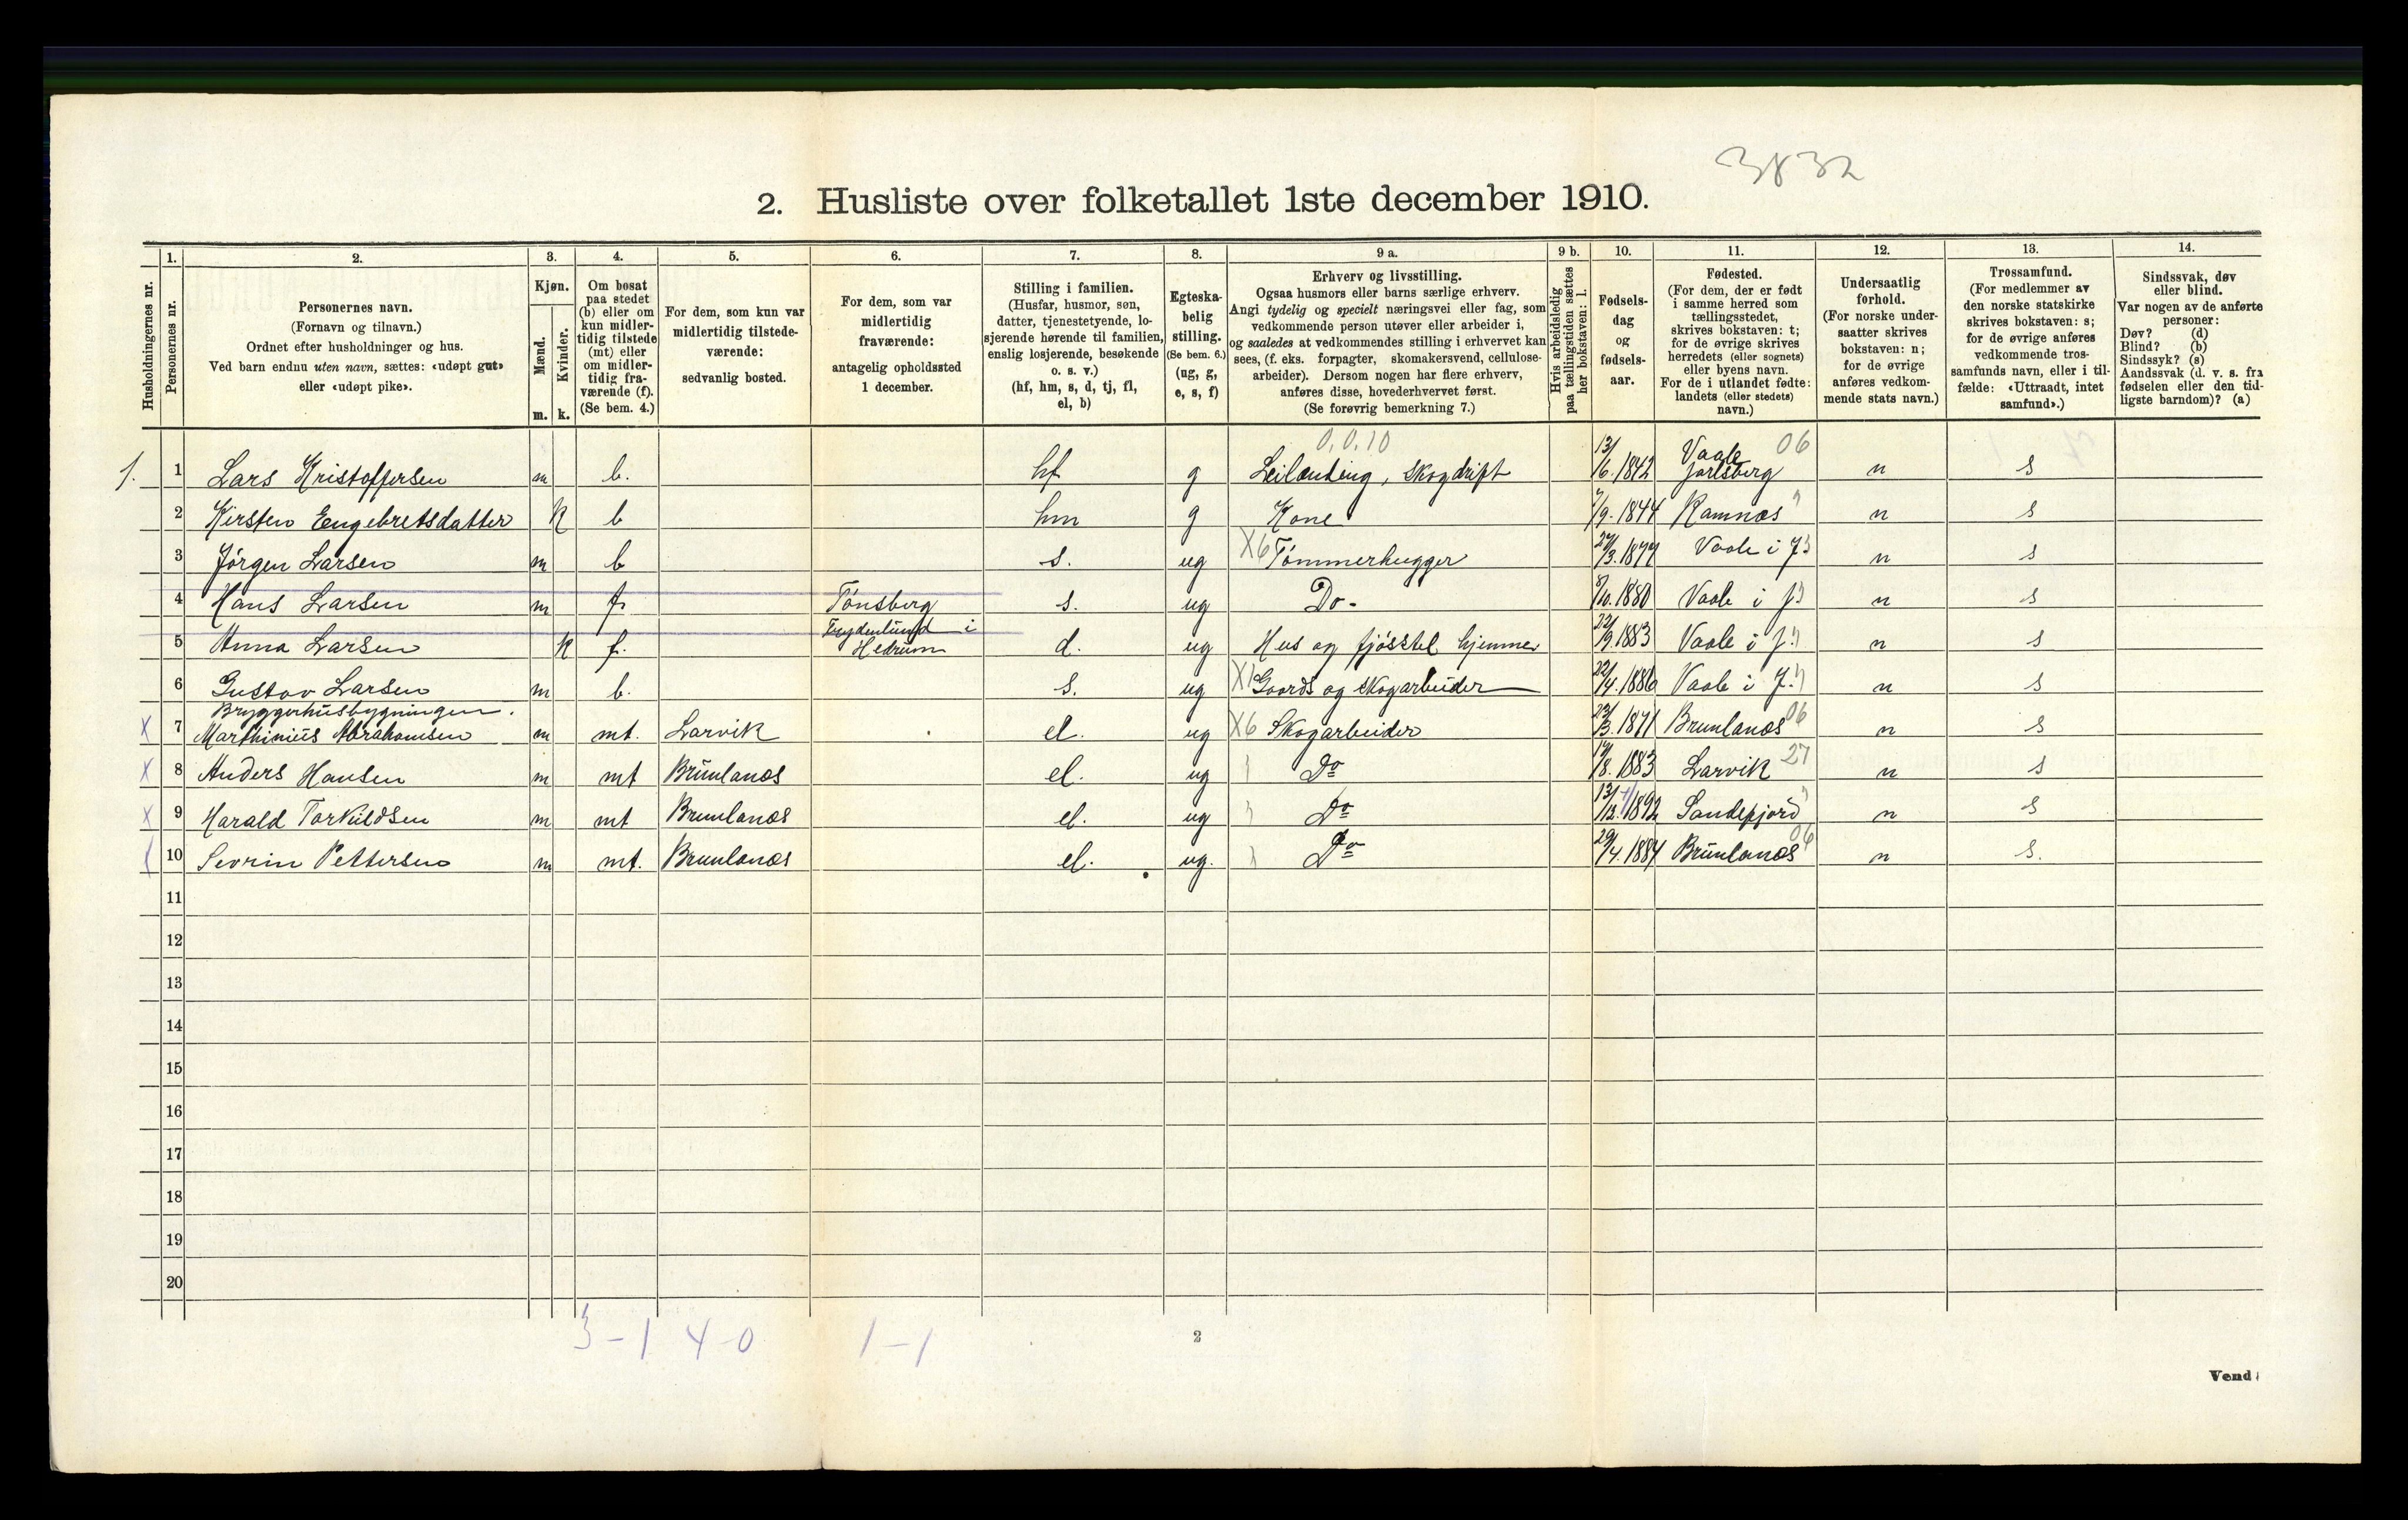 3832
2. Husliste over folketallet 1ste december 1910.
Husholdningernes nr.
1. Personernes nr.
2. Personernes navn. (Fornavn og tilnavn.) Ordnet efter husholdninger og hus. Ved barn endnu uten navn, sættes: «udøpt gut» eller «udøpt pike».
3. Kjøn. Mænd. m. Kvinder. k.
4. Om bosat paa stedet (b) eller om kun midlertidig tilstede (mt) eller om midlertidig fraværende (f). (Se bem. 4.)
5. For dem, som kun var midlertidig tilstedeværende: sedvanlig bosted.
6. For dem, som var midlertidig fraværende: antagelig opholdssted 1 december.
7. Stilling i familien. (Husfar, husmor, søn, datter, tjenestetyende, losjerende hørende til familien, enslig losjerende, besøkende o. s. v.) (hf, hm, s, d, tj, fl, el, b)
8. Egteskabelig stilling. (Se bem. 6.) (ug, g, e, s, f)
9 a. Erhverv og livsstilling. Ogsaa husmors eller barns særlige erhverv. Angi tydelig og specielt næringsvei eller fag, som vedkommende person utøver eller arbeider i, og saaledes at vedkommendes stilling i erhvervet kan sees, (f. eks. forpagter, skomakersvend, cellulosearbeider). Dersom nogen har flere erhverv, anføres disse, hovederhvervet først. (Se forøvrig bemerkning 7.)
9 b. Hvis arbeidsledig paa tællingstiden sættes her bokstaven: l.
10. Fødselsdag og fødselsaar.
11. Fødested. (For dem, der er født i samme herred som tællingsstedet, skrives bokstaven: t; for de øvrige skrives herredets (eller sognets) eller byens navn. For de i utlandet fødte: landets (eller stedets) navn.)
12. Undersaatlig forhold. (For norske undersaatter skrives bokstaven: n; for de øvrige anføres vedkommende stats navn.)
13. Trossamfund. (For medlemmer av den norske statskirke skrives bokstaven: s; for de øvrige anføres vedkommende trossamfunds navn, eller i tilfælde: «Uttraadt, intet samfund».)
14. Sindssvak, døv eller blind. Var nogen av de anførte personer: Døv? (d) Blind? (b) Sindssyk? (s) Aandssvak (d. v. s. fra fødselen eller den tidligste barndom)? (a)
0.0.10 06
1. 1 Lars Kristoffersen m b. hf g Leilending, Skogdrift 13/6.1842 Vaale Jarlsberg n s
2 Kirsten Engebretsdatter k b hm g Kone /9.1844 Ramnæs n s
3 Jørgen Larsen m b s. ug X6 Tømmerhugger 27/3.1877 Vaale i J n s
4 Hans Larsen m f. Tønsberg s. ug Do. 8/10.1880 Vaale i J n s
5 Anna Larsen k f. Frydenlund i Hedrum d. ug Hus og fjøsstel hjemme 22/9.1883 Vaale i J. n s
6 Gustav Larsen m b. s. ug X1 Gaards og skogarbeider 22/4.1886 Vaale i J. n s
Bryggerhusbygningen.
X 7 Marthinius Abrahamsen m mt. Larvik el. ug X6 Skogarbeider 23/3.1871 Brunlanæs 06 n s
X 8 Anders Hansen m mt Brunlanæs el. ug Do 19/8.1883 Larvik 27 n s
X 9 Harald Torkildsen m mt Brunlanæs el. ug Do 13/12.1892 Sandefjord n s
10 Sevrin Pettersen m mt. Brunlanæs el. ug. Do 29/4.1884 Brunlanæs 06 n s.
11
12
13
14
15
16
17
18
19
20
3-1 4-0 1-1
2
Vend